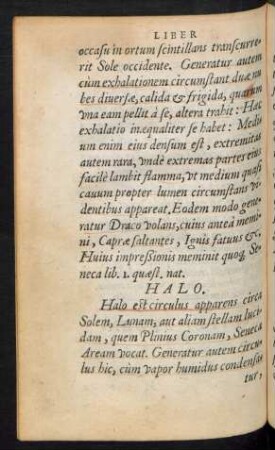 LIBER
occasu in ortum scintillans transcurre-
rit Sole occidente. Generatur autem
cùm exhalationem circumstant duæ nu
bes diuersæ, calida & frigida, quarum
vna eam pellit à se, altera trahit: Hæc
exhalatio inæqualiter se habet: Medi
um enim eius densum est, extremitas
autem rara, vndè extremas partes eius
facilè lambit flamma, vt medium quasi
cauum propter lumen circumstans vi-
dentibus appareat. Eodem modo gene-
ratur Draco volans, cuius anteà memi
ni, Capræ saltantes, Ignis fatuus &c.
Huius impressionis meminit quoq; Se-
neca lib. 1. quæst. nat.
HALO.
Halo est circulus apparens circa
Solem, Lunam, aut aliam stellam luci
dam, quem Plinius Coronam, Seneca
Aream vocat. Generatur autem circu
lus hic, cùm vapor humidus condensa
tur,